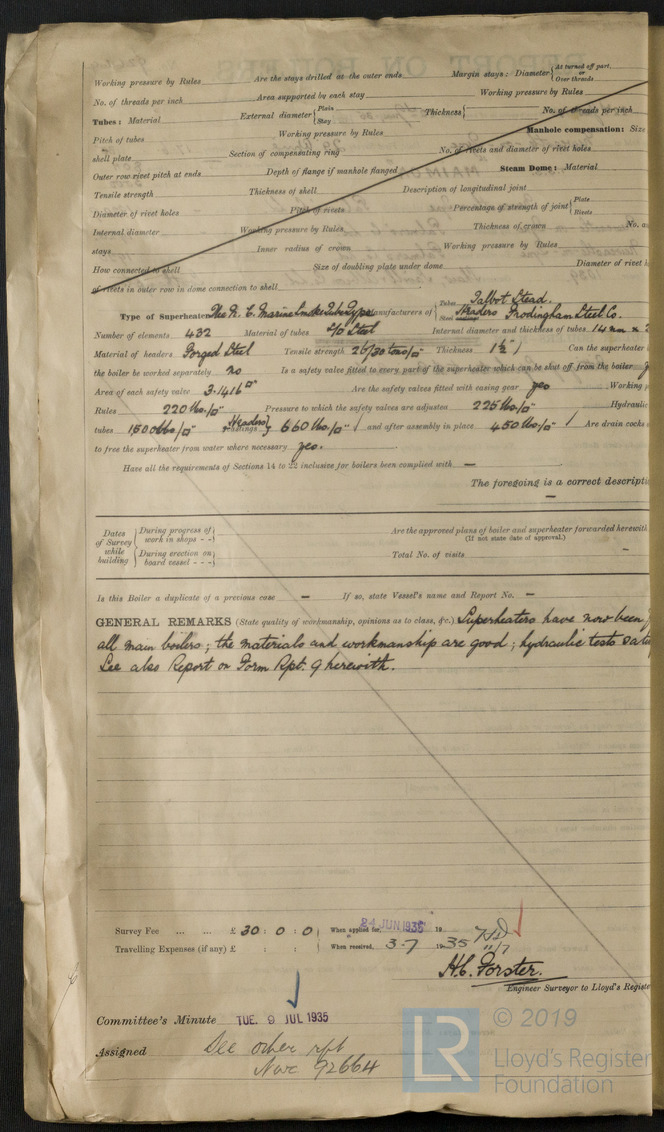 Working pressure by Rules Are the stays drilled at the outer ends Margin stays: Diameter { At turned off part, or Over threads
No. of threads per inch Area supported by each stay Working pressure by Rules
Tubes: Material External diameter { Plain Stay Thickness { No. of threads per inch
Pitch of tubes Working pressure by Rules Manhole compensation: Size
shell plate Section of compensating ring No. of rivets and diameter of rivet holes
Outer row rivet pitch at ends Depth of flange if manhole flanged Steam Dome: Material
Tensile strength Thickness of shell Description of longitudinal joint
Diameter of rivet holes Pitch of rivets Percentage of strength of joint { Plate Rivets
Internal diameter Working pressure by Rules Thickness of crown No. a
stays Inner radius of crown Working pressure by Rules
How connected to shell Size of doubling plate under dome Diameter of rivet h
of rivets in outer row in dome connection to shell
Type of Superheater The N. E. Marine Smoke Tube Type Manufacturers of { Tubes Talbot Stead. Steel Headers Frodingham Steel Co.
Number of elements 432 Material of tubes S/D Steel Internal diameter and thickness of tubes 14 mm x
Material of headers Forged Steel Tensile strength 26/30 tons/□" Thickness 1½" Can the superheater
the boiler be worked separately no Is a safety valve fitted to every part of the superheater which can be shut off from the boiler
Area of each safety valve 3.1416 □" Are the safety valves fitted with easing gear yes Working
Rules 220 lbs./□" Pressure to which the safety valves are adjusted 225 lbs/□" Hydraulic
tubes 1500 lbs/□" Headers } 660 lbs./□" and after assembly in place 450 lbs./□" Are drain cocks
to free the superheater from water where necessary yes.
Have all the requirements of Sections 14 to 22 inclusive for boilers been complied with —
The foregoing is a correct descripti
—
Dates of Survey while building { During progress of work in shops - - { During erection on board vessel - - -
Are the approved plans of boiler and superheater forwarded herewith
(If not state date of approval.)
Total No. of visits —
Is this Boiler a duplicate of a previous case — If so, state Vessel's name and Report No. —
GENERAL REMARKS (State quality of workmanship, opinions as to class, &c.) Superheaters have now been
all main boilers; the materials and workmanship are good; hydraulic tests
See also Report on Form Rpt. 9 herewith.
Survey Fee ... ... £ 30 : 0 : 0 When applied for, 24 JUN 1935 19
Travelling Expenses (if any) £ : : When received, 3-7 1935 11/7
H.C. Forster.
Engineer Surveyor to Lloyd's Registe
Committee's Minute TUE. 9 JUL 1935
Assigned See other rpt
Nwc 92664
LR © 2019
Lloyd's Register
Foundation